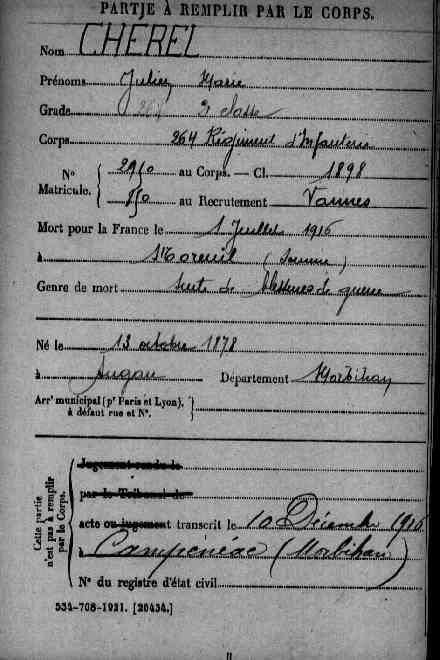 PARTIE À REMPLIR PAR LE CORPS.
Nom CHEREL
Prénoms Julien Marie
Grade 2e classe
Corps 264 Régiment d'Infanterie
N° Matricule. { 2910 au Corps. — Cl. 1898
850 au Recrutement Vannes
Mort pour la France le 1 Juillet 1916
à Moreuil (Somme)
Genre de mort Suite de blessures de guerre
Né le 13 octobre 1878
à Augan Département Morbihan
Arrt municipal (pr Paris et Lyon), à défaut rue et N°. }
Cette partie n'est pas à remplir par le Corps.
Jugement rendu le
par le Tribunal de
acte ou jugement transcrit le 10 Décembre 1916
à Campénéac (Morbihan)
N° du registre d'état civil
534-708-1921. [20434.]